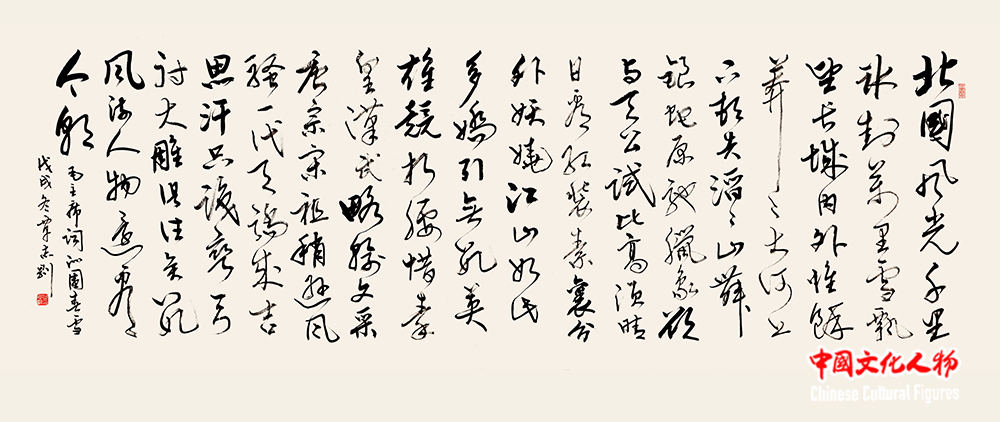 北國风光千里
冰封萬里雪飘
望长城内外惟餘
莽〻大河上
下顿失滔〻山舞
银蛇原驰臘象欲
与天公试比高须晴
日看红装素裹分
外妖娆江山如此
多嬌引无数英
雄競折腰惜秦
皇漢武略输文采
唐宗宋祖稍逊风
骚一代天骄成吉
思汗只识弯弓
射大雕俱往矣数
风流人物还看
今朝
毛主席词沁園春雪
戊戌冬覃志刚
中國文化人物
Chinese Cultural Figures